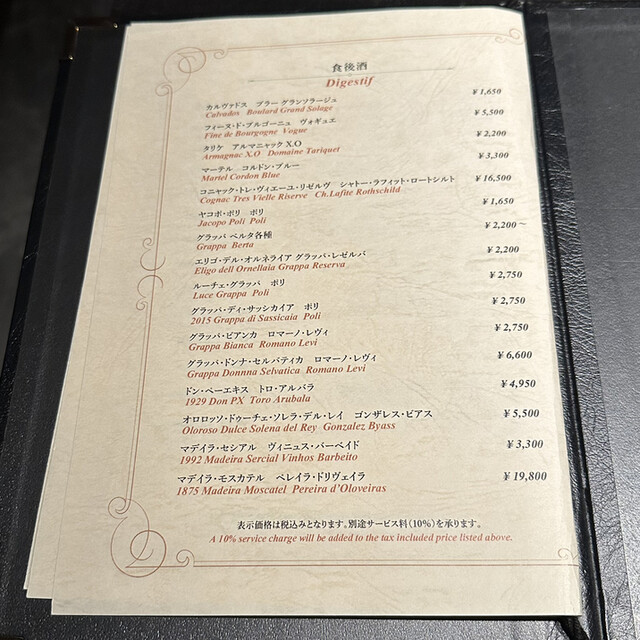 食後酒
Digestif
カルヴァドス ブラー グランソラージュ ¥1,650
Calvados Boulard Grand Solage
フィーヌ・ド・ブルゴーニュ ヴォギュエ ¥5,500
Fine de Bourgogne Vogue
タリケ アルマニャック X.O ¥2,200
Armagnac X.O Domaine Tariquet
マーテル コルドン・ブルー ¥3,300
Martel Cordon Blue
コニャック・トレ・ヴィエーユ・リゼルヴ シャトー・ラフィット・ロートシルト ¥16,500
Cognac Tres Vielle Riserve Ch.Lafite Rothschild
ヤコポ・ポリ ポリ ¥1,650
Jacopo Poli Poli
グラッパ ベルタ各種 ¥2,200～
Grappa Berta
エリゴ・デル・オルネライア グラッパ・レゼルバ ¥2,200
Eligo dell Ornellaia Grappa Reserva
ルーチェ・グラッパ ポリ ¥2,750
Luce Grappa Poli
グラッパ・ディ・サッシカイア ポリ ¥2,750
2015 Grappa di Sassicaia Poli
グラッパ・ビアンカ ロマーノ・レヴィ ¥2,750
Grappa Bianca Romano Levi
グラッパ・ドンナ・セルバティカ ロマーノ・レヴィ ¥6,600
Grappa Donnna Selvatica Romano Levi
ドン・ペーエキス トロ・アルバラ ¥4,950
1929 Don PX Toro Arubala
オロロッソ・ドゥーチェ・ソレラ・デル・レイ ゴンザレス・ビアス ¥5,500
Oloroso Dulce Solena del Rey Gonzalez Byass
マデイラ・セシアル ヴィニュス・バーベイド ¥3,300
1992 Madeira Sercial Vinhos Barbeito
マデイラ・モスカテル ペレイラ・ドリヴェイラ ¥19,800
1875 Madeira Moscatel Pereira d'Oloveiras
表示価格は税込みとなります。別途サービス料（10％）を承ります。
A 10% service charge will be added to the tax included price listed above.